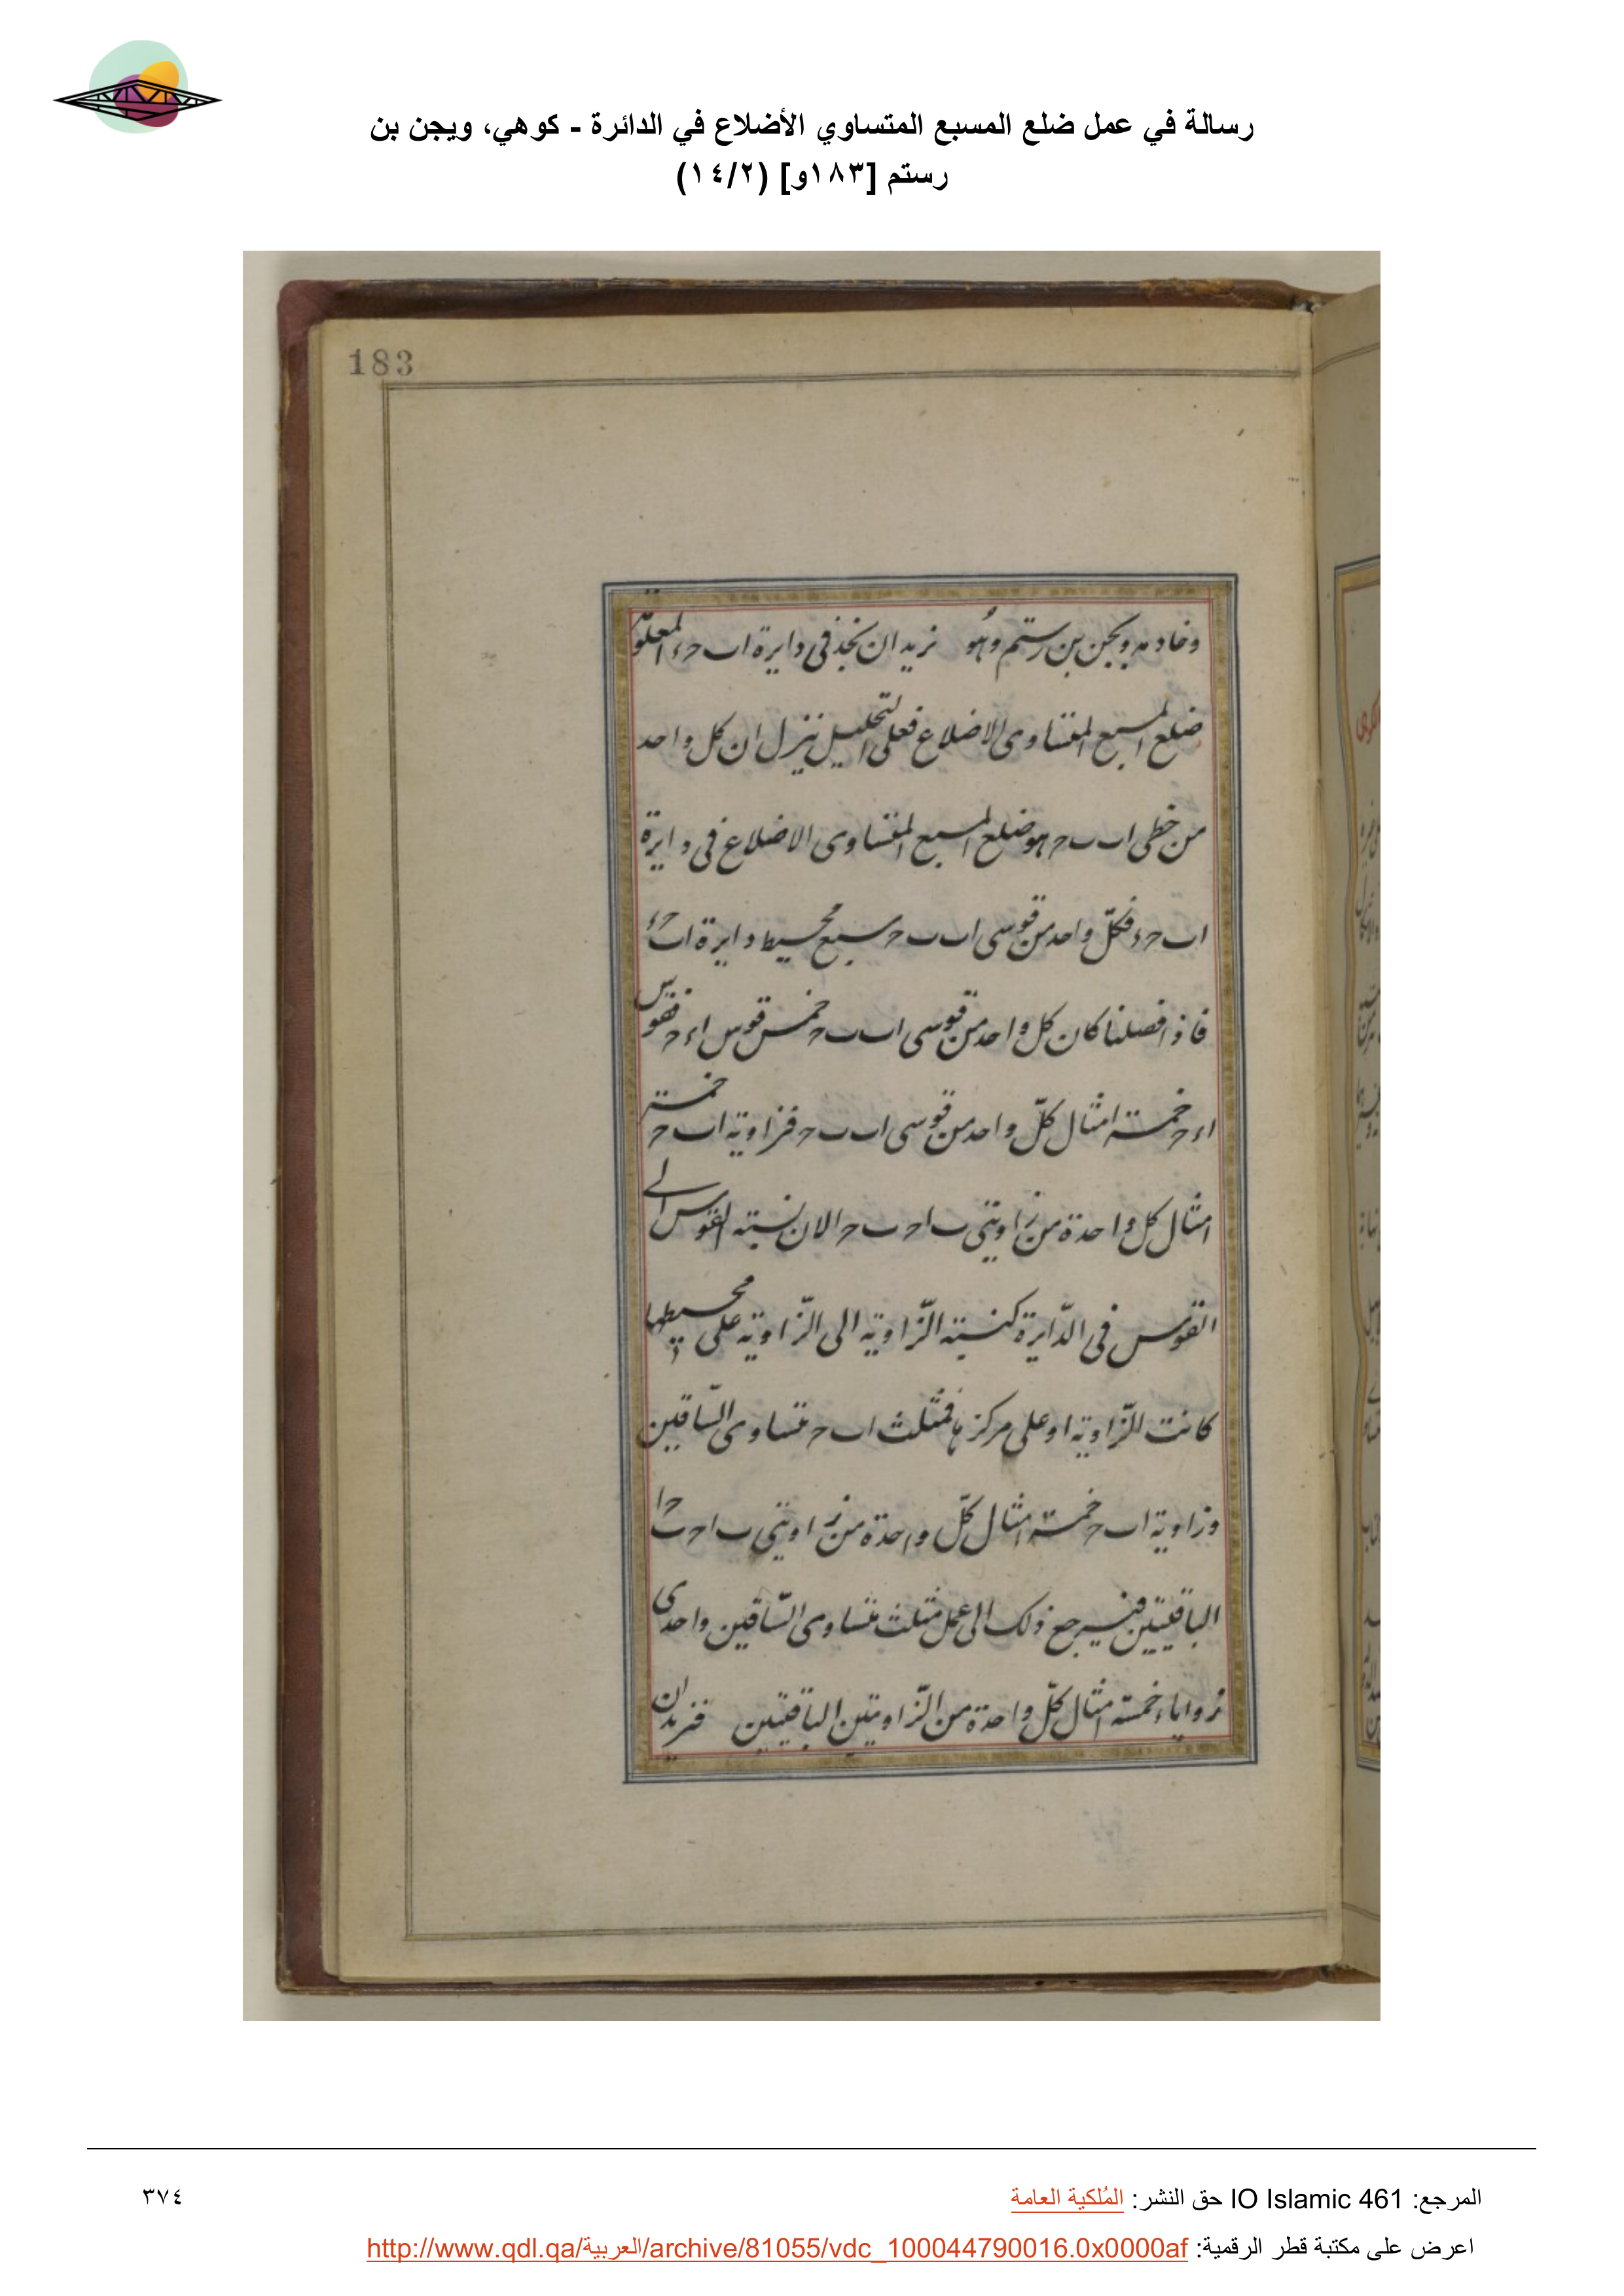 رسالة في عمل ضلع المسبع المتساوي الأضلاع في الدائرة - كوهي، ويجن بن
رستم [١٨٣و] (١٤/٢)
183
وخادمه ويجن بن رستم وهو نريد ان نتخذ فى دايرة اب حء المعلومة
ضلع المسبع المتساوى الاضلاع فعلى التحليل ننزل ان كل واحد
من خطى اب ب ح هو ضلع المسبع المتساوى الاضلاع فى دايرة
اب حء فكلّ واحد من قوسى اب ب ح سبع محيط دايرة اب حء
فاذا فصلنا كان كل واحد من قوسى اب ب ح خمس قوس اء ح فقوس
اء ح خمسة امثال كلّ واحد من قوسى اب ب ح فزاوية اب ح خمسة
امثال كل واحدة من زاويتى ب اح ب ح ا لان نسبة القوس الى
القوس فى الدّايرة كنسبة الزّاوية الى الزّاوية على محيطها
كانت الزّاوية او على مركزها فمثلث اب ح متساوى السّاقين
وزاوية اب ح خمسة امثال كلّ واحدة من زاويتى ب اح ب ح ا
الباقيتين فيرجع ذلك الى عمل مثلث متساوى السّاقين واحدى
زواياه خمسة امثال كلّ واحدة من الزّاويتين الباقيتين فنريد ان
المرجع: IO Islamic 461 حق النشر: المُلكية العامة
٣٧٤
اعرض على مكتبة قطر الرقمية: http://www.qdl.qa/العربية/archive/81055/vdc_100044790016.0x0000af